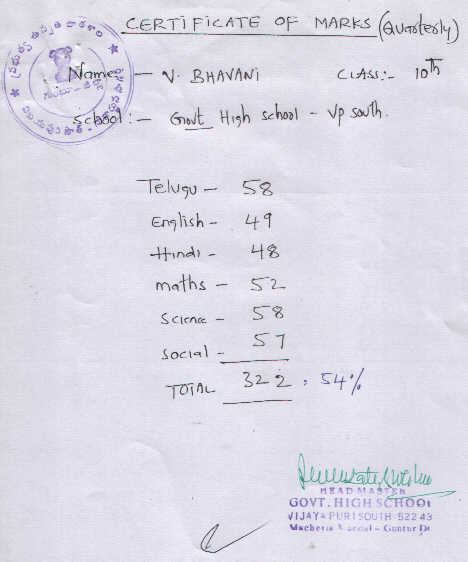 CERTIFICATE OF MARKS (Quarterly)
Name:- N. BHAVANI CLASS:- 10th
School:- Govt High school - Vp south.
Telugu - 58
English - 49
Hindi - 48
maths - 52
science - 58
social - 57
TOTAL 322 = 54%
HEADMASTER
GOVT. HIGH SCHOOL
VIJAYA PURI SOUTH-522 43
Macherla Mandal - Guntur Dt